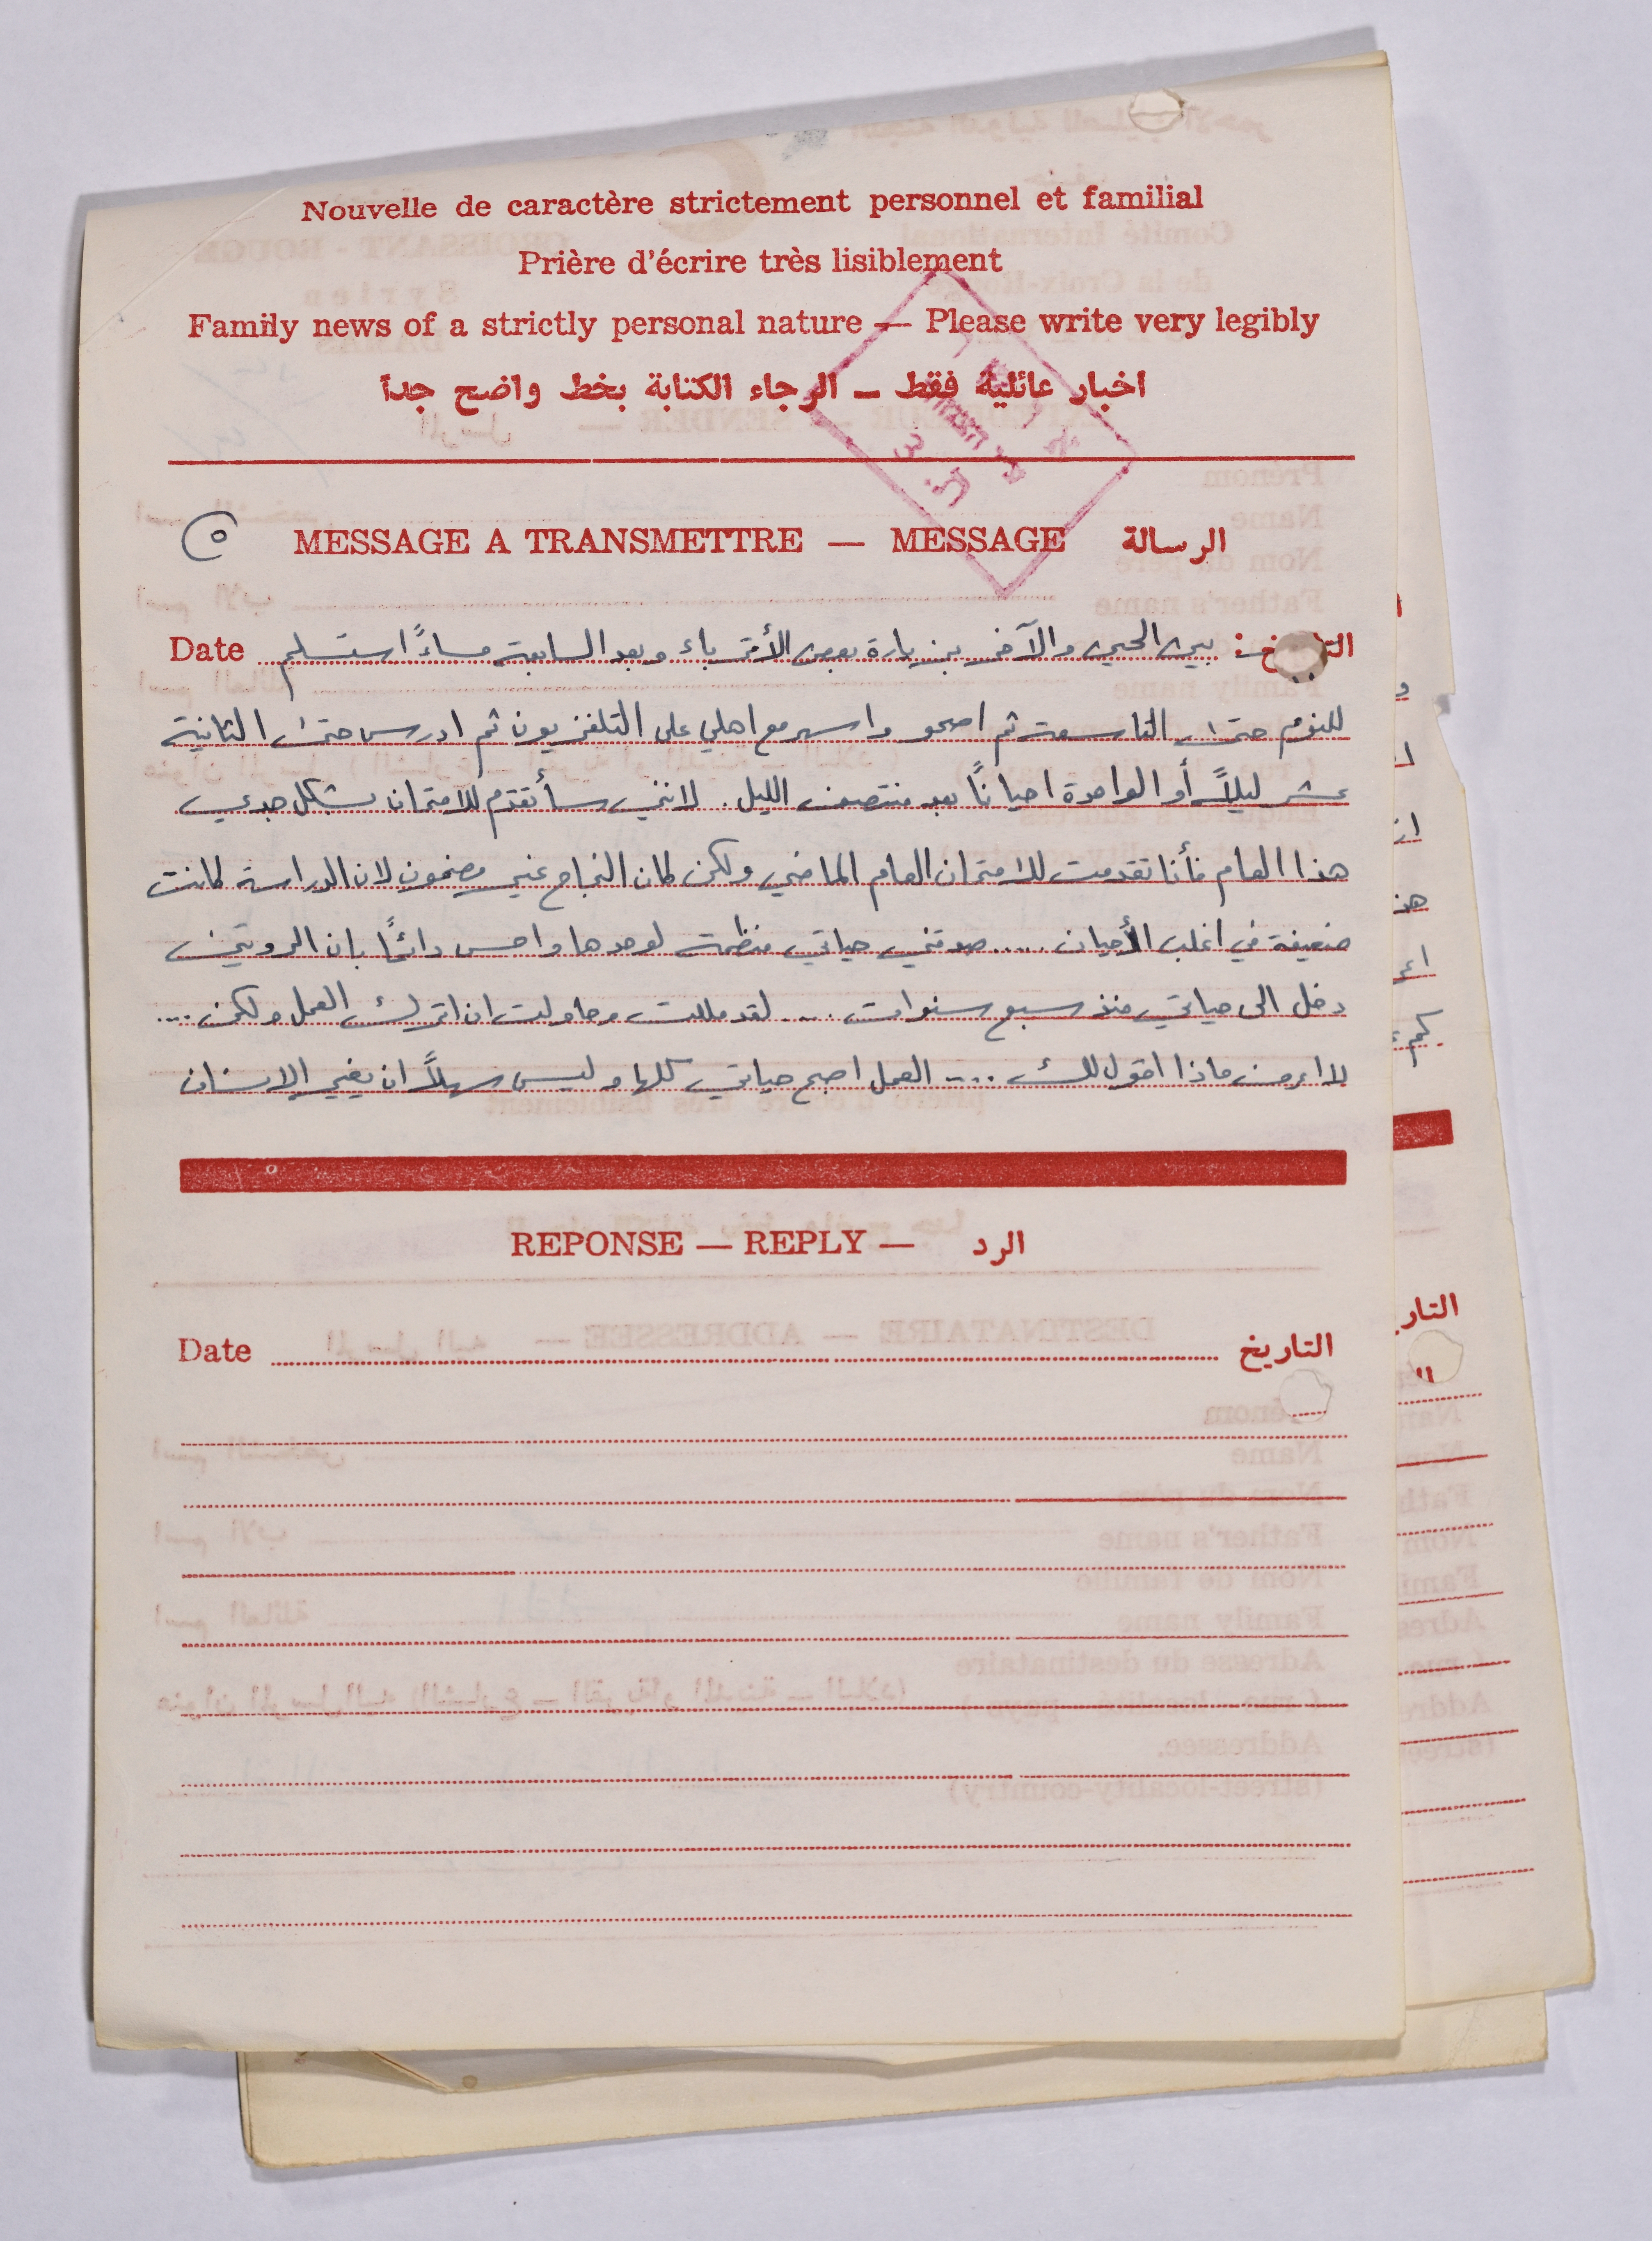 Nouvelle de caractère strictement personnel et familial
Prière d'écrire très lisiblement
Family news of a strictly personal nature — Please write very legibly
اخبار عائلية فقط – الرجاء الكتابة بخط واضح جداً
٥
MESSAGE A TRANSMETTRE — MESSAGE الرسالة
Date بين الحين والآخر بزيارة بعض الأقرباء وبعد السابعة مساءً استسلم
للنوم حتى التاسعة ثم اصحو واسهر مع اهلي على التلفزيون ثم ادرس حتى الثانية
عشر ليلاً أو الواحدة احياناً بعد منتصف الليل. لانني سأتقدم للامتحان بشكل جدي
هذا العام فأنا تقدمت للامتحان العام الماضي ولكن كان النجاح غير مضمون لان الدراسة كانت
ضعيفة في اغلب الأحيان ..... صدقني حياتي منظمة لوحدها واحس دائماً بان الروتين
دخل الى حياتي منذ سبع سنوات .... لقد مللت وحاولت ان اترك العمل ولكن ....
لا اعرف ماذا اقول لك .... العمل اصبح حياتي كلها وليس سهلاً ان يغير الإنسان
REPONSE — REPLY — الرد
Date التاريخ